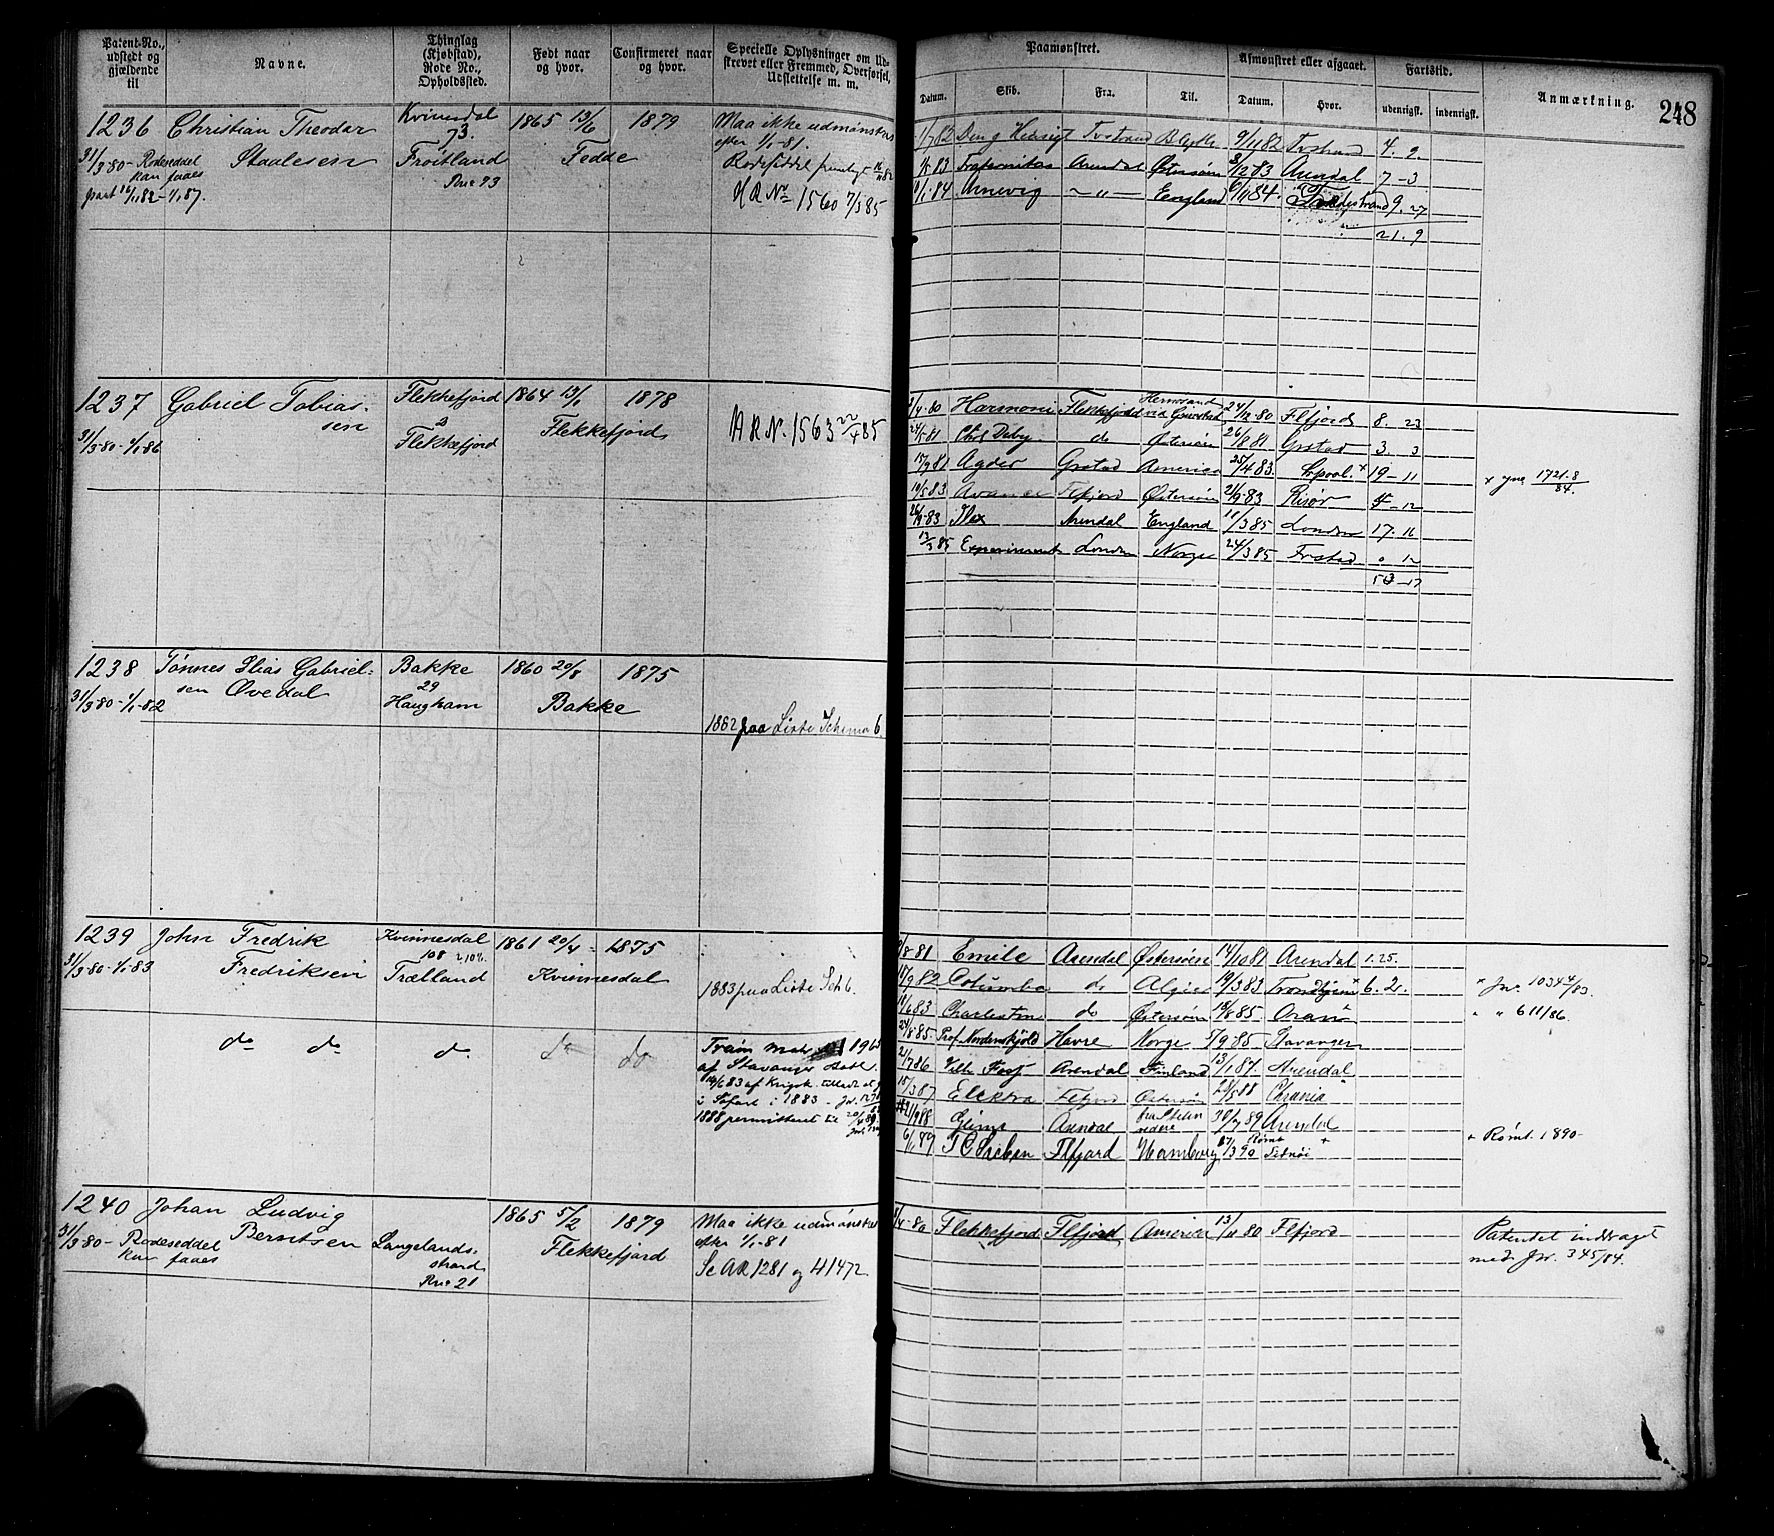 Patent-No., udstedt og gjældende til
Navne.
Thinglag (Kjøbstad), Rode No., Opholdssted.
Født naar og hvor.
Confirmeret naar og hvor.
Specielle Oplysninger om Udskrevet eller Fremmed, Overførsel, Udslettelse m. m.
Paamønstret.
Afmønstret eller afgaaet.
Fartstid.
Anmærkning.
248
Datum.
Skib.
Fra.
Til.
Datum.
Hvor.
udenrigsk.
indenrigsk.
1236 Christian Theodor Kvinesdal 1865 13/6 1879 Maa ikke udmønstres
73. efter 1/1-81.
31/3-80- Rodeseddel Staalesen Frøitland Fedde
kan faaes Rne 93
16/11 82 - 1/1 87.
HR No 1560 7/3 85
1/7 82 Tvstrand Blythe 9/11 82 Tvstrand 4. 2.
83 Fraternitas Arendal Østersøen 3/12 83 Arendal 7-3
1/1-84 Arnevig - " - England 9/11 84. Tvedestrand 9. 27
21. 9
1237 Gabriel Tobias- Flekkefjord 1864 13/1 1878
sen 2 Flekkefjord
31/3-80-1/1-86 Flekkefjord
HR N. 1563 22/4 85
Hernosand
/4-80 Harmoni Flekkefjord via Grimstad 24/12-80 Flfjord 8. 23
24/5-81 do Østersøen 26/8 81 Grstad 3. 3
15/9 81 Agder Grstad America 25/4 83. Lrpool. x 19-11
x Jnr. 1721-8/84.
19/5 83 Avance Flfjord Østersøen 21/9-83 Risør 4-12
26/9-83 Ilex Arendal England 11/3 85 London 17. 16
13/3 85 Experiment London Norge 24/3 85 Frstad 0 12
53-17
1238 Tønnes Elias Gabriel- Bakke 1860 20/8 1875
sen Øvedal 29
31/3-80-1/1-82 Haugham Bakke
1882 paa Liste Schema 6.
1239 John Fredrik Kvinnesdal 1861 20/4 - 1875
108
31/3-80-1/1-83 Fredriksen Trælland Kvinnesdal
1883 paa Liste Sch 6.
/8-81 Emile Arendal Østersøen 14/10 81 Arendal 1. 25.
18/9 82 Columba do Algier 19/3 83 Trondhjem x 6. 21.
x Jnr. 1034 4/83.
18/6 83 Charleston do Østersøen 18/8 85 Oran
" " 611/86.
do do do do do
24/8-85 Prof. Nordenskjold Havre Norge 7/9 85 Stavanger
21/7 86 Arendal Finland 13/1 87. Arendal
15/3 87 Elektra Flfjord Østersøen 29/5 88 Chrania
88 Arendal 30/7 89 Arendal
6/1 89 Flfjord Hamburg 27/3 90 Rømt +
+ Rømt. 1890-
af Stavanger
19/6 83 af Krigsk.
i Søfart i 1883 - Jr.
1888 permitteret til
1240 Johan Ludvig 1865 5/2 1879 Maa ikke udmønstres
Berntsen Langelands- efter 1/1-81
31/3-80- Rodeseddel strand Flekkefjord
kan faaes Rne 21 Se AR 1281 og H 1472.
/4-80 Flekkefjord Flfjord America 13/11 80 Flfjord
Patentet inddraget
med Jnr. 345/84.